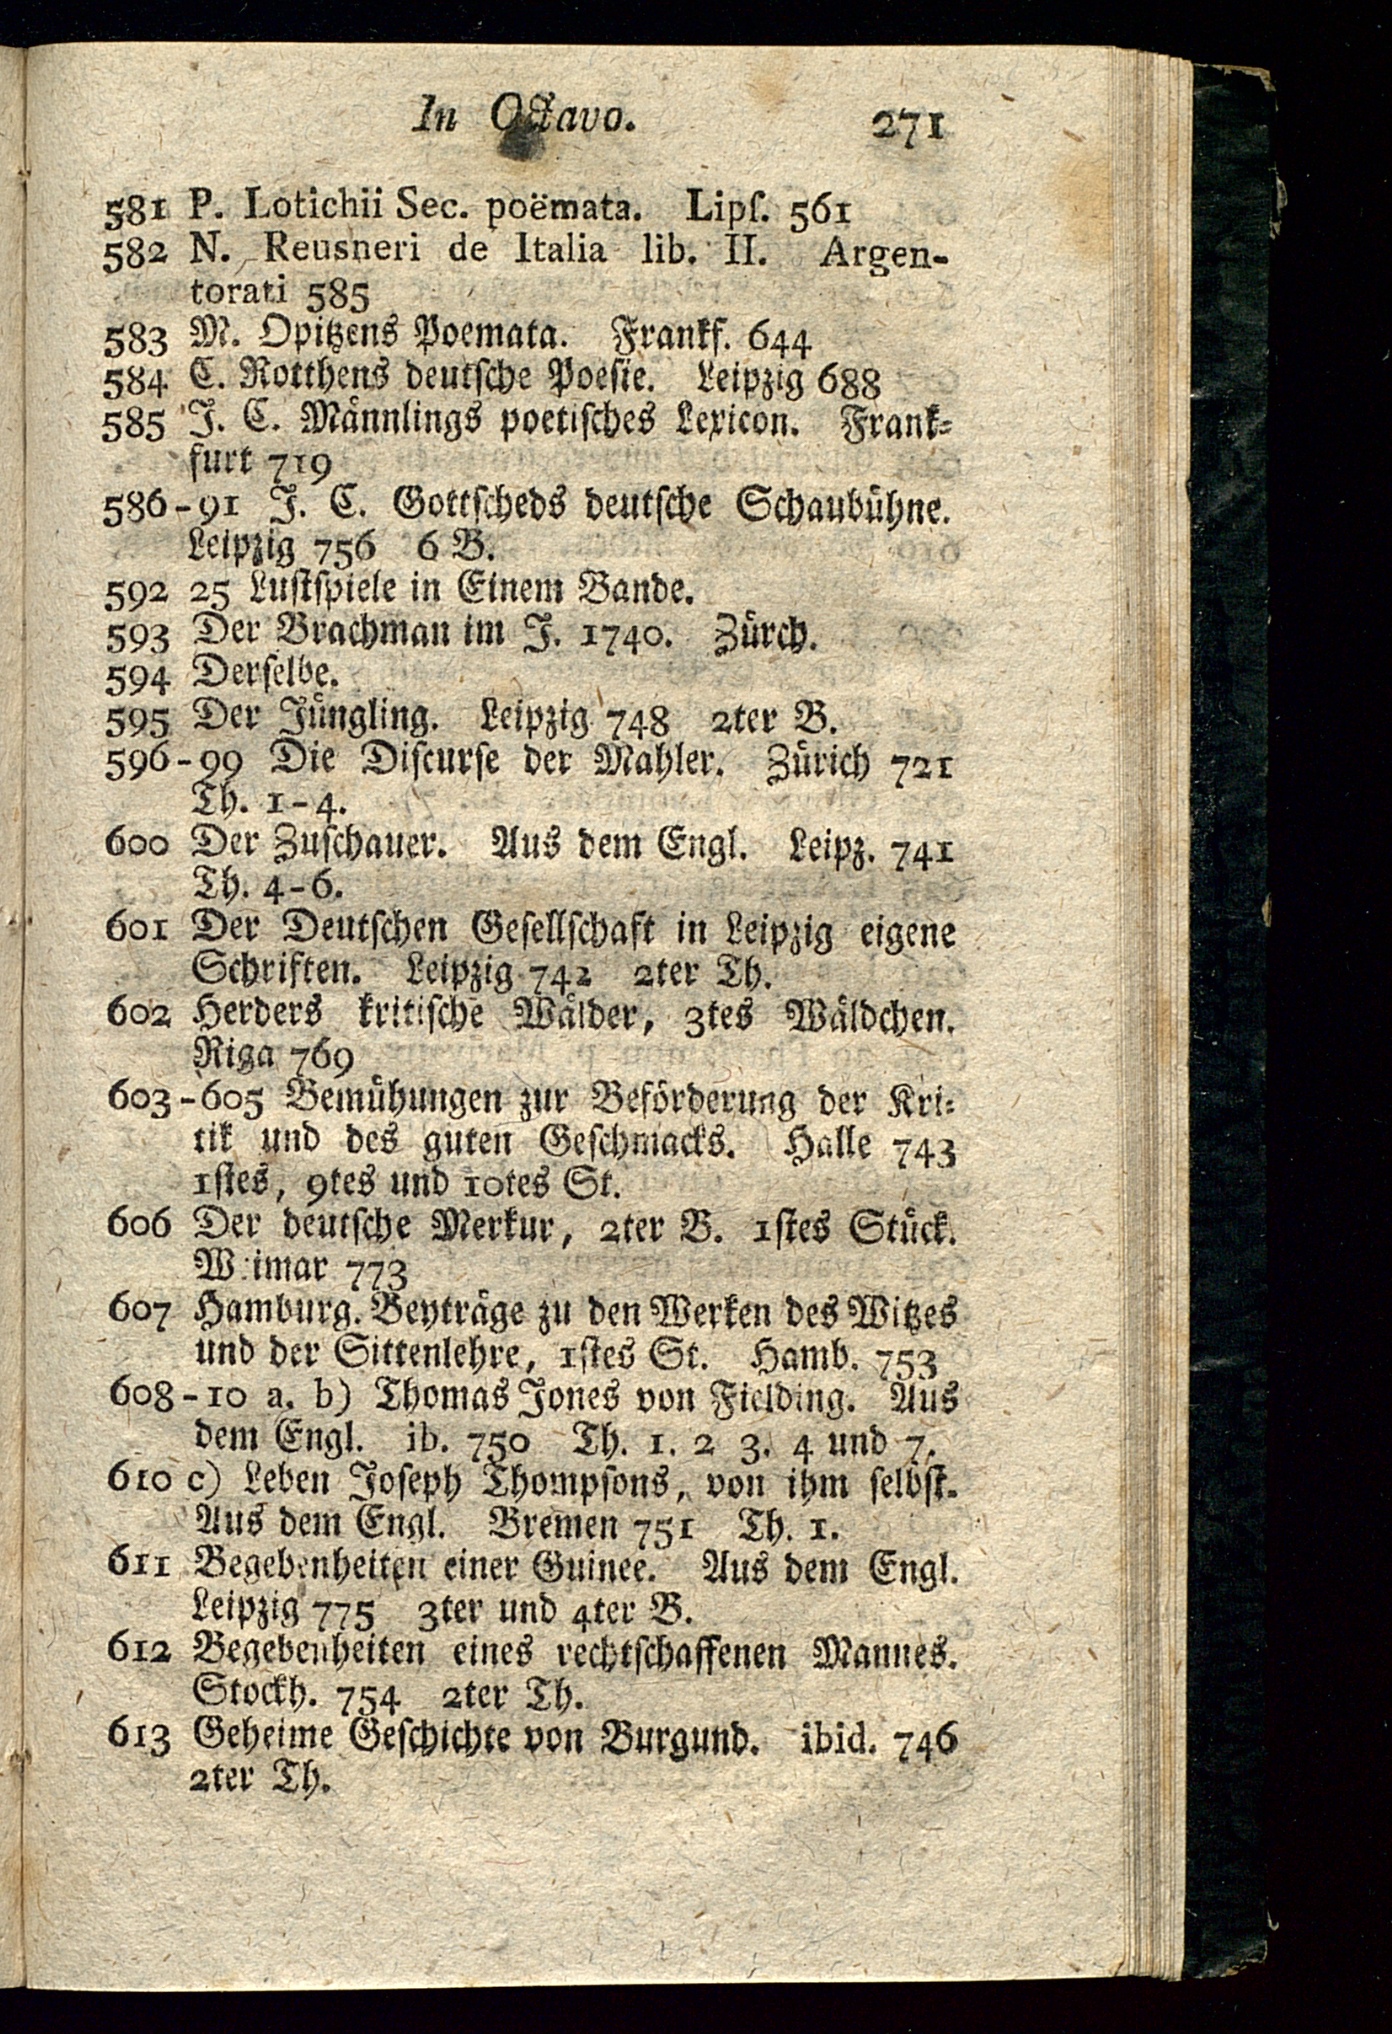 In Octavo. 271
581 P. Lotichii Sec. poëmata. Lipſ. 561
582 N. Reusneri de Italia lib. II. Argen-
torati 585
583 M. Opitzens Poemata. Frankf. 644
584 C. Rotthens deutſche Poeſie. Leipzig 688
585 J. C. Männlings poetiſches Lexicon. Frank-
furt 719
586-91 J. C. Gottſcheds deutſche Schaubühne.
Leipzig 756 6 B.
592 25 Luſtſpiele in Einem Bande.
593 Der Brachman im J. 1740. Zürch.
594 Derſelbe.
595 Der Jüngling. Leipzig 748 2ter B.
596-99 Die Diſcurſe der Mahler. Zürich 721
Th. 1-4.
600 Der Zuſchauer. Aus dem Engl. Leipz. 741
Th. 4-6.
601 Der Deutſchen Geſellſchaft in Leipzig eigene
Schriften. Leipzig 742 2ter Th.
602 Herders kritiſche Wälder, 3tes Wäldchen.
Riga 769
603-605 Bemühungen zur Beförderung der Kri-
tik und des guten Geſchmacks. Halle 743
1ſtes, 9tes und 10tes St.
606 Der deutſche Merkur, 2ter B. 1ſtes Stück.
W imar 773
607 Hamburg. Beyträge zu den Werken des Witzes
und der Sittenlehre, 1ſtes St. Hamb. 753
608-10 a. b) Thomas Jones von Fielding. Aus
dem Engl. ib. 750 Th. 1. 2 3. 4 und 7.
610 c) Leben Joſeph Thompſons, von ihm ſelbſt.
Aus dem Engl. Bremen 751 Th. 1.
611 Begebenheiten einer Guinee. Aus dem Engl.
Leipzig 775 3ter und 4ter B.
612 Begebenheiten eines rechtſchaffenen Mannes.
Stockh. 754 2ter Th.
613 Geheime Geſchichte von Burgund. ibid. 746
2ter Th.